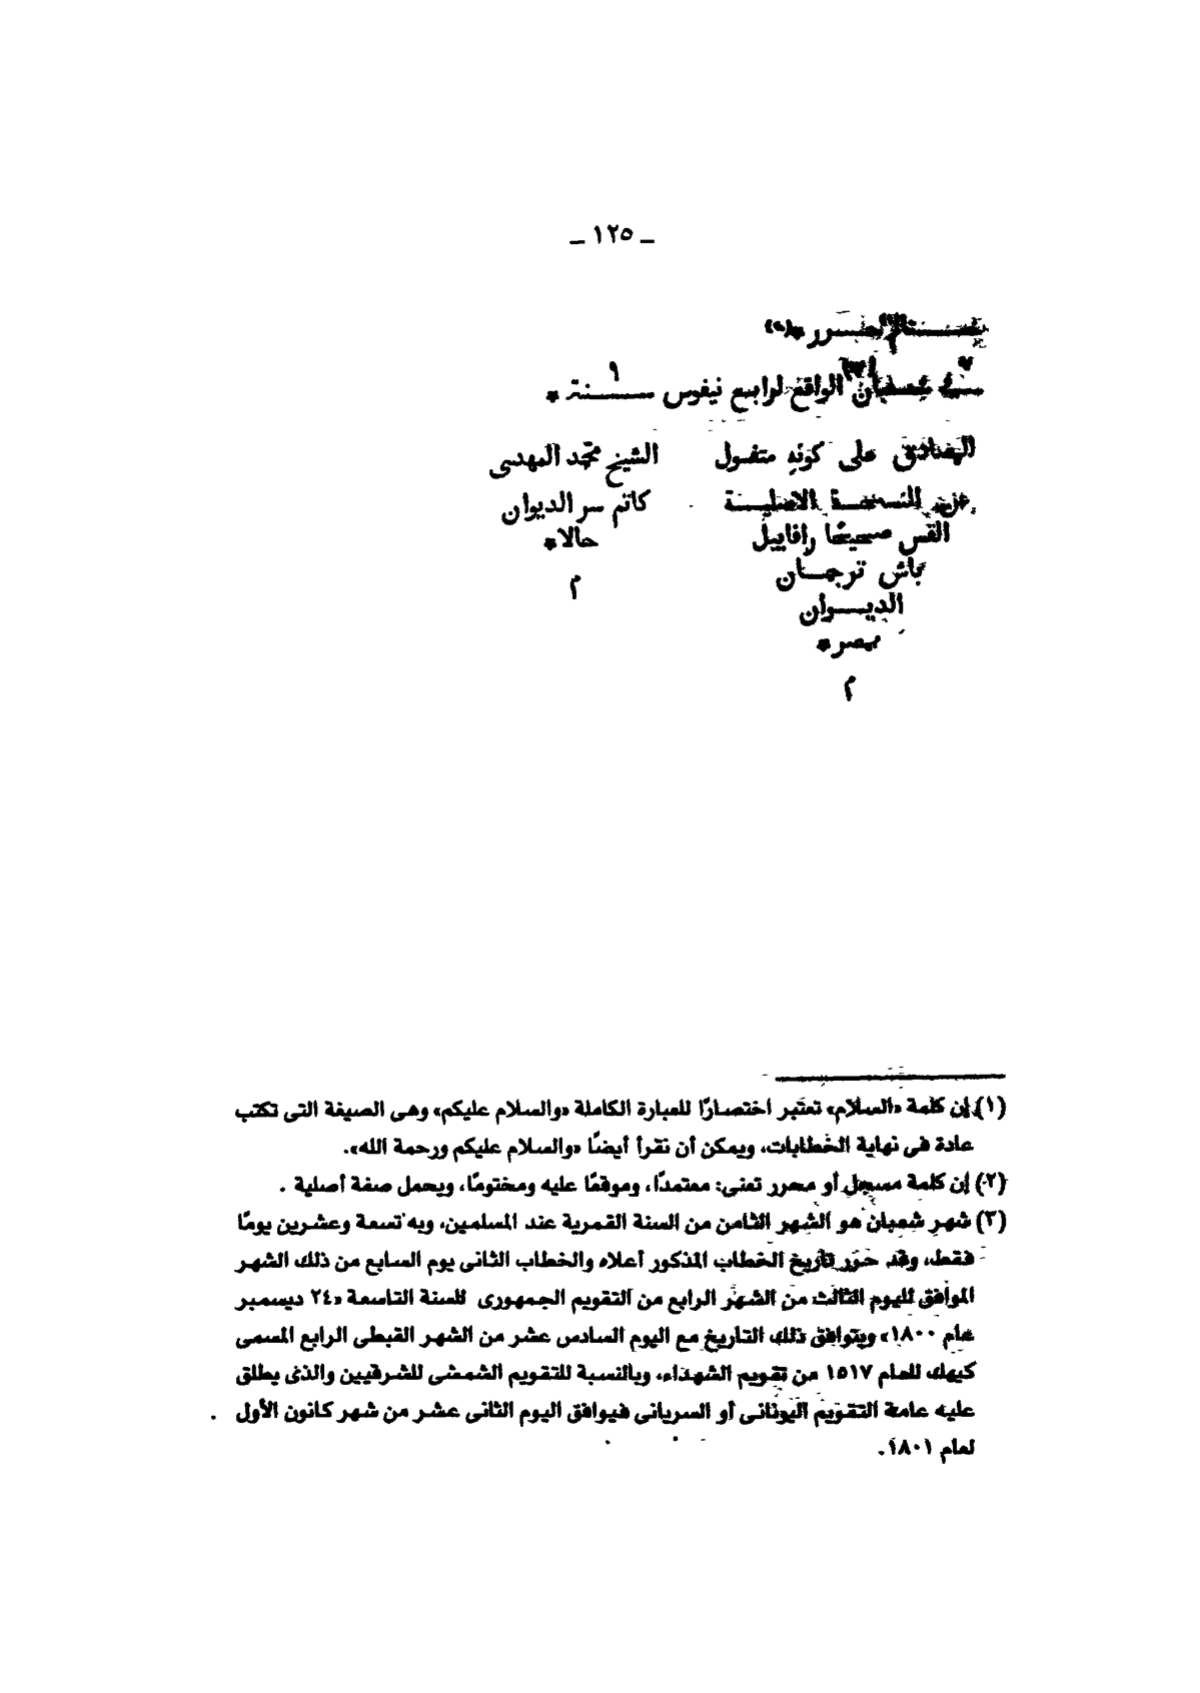 ـ ١٢٥ ـ
٧ ٩
فى شعبان(٣) الواقع لرابع نيفوس سنة *
المصادق على كونه منقول
عن النسخة الاصلية
القس صحيحًا رافاييل
باش ترجمان
الديوان
بمصر *
م
الشيخ محمد المهدى
كاتم سر الديوان
حالا *
م
(١) إن كلمة «السلام» تعتبر اختصارًا للعبارة الكاملة «والسلام عليكم» وهى الصيغة التى تكتب
عادة فى نهاية الخطابات، ويمكن أن نقرأ أيضًا «والسلام عليكم ورحمة الله».
(٢) إن كلمة مسجل أو محرر تعنى: معتمدًا، وموقعًا عليه ومختومًا، ويحمل صفة أصلية .
(٣) شهر شعبان هو الشهر الثامن من السنة القمرية عند المسلمين، وبه تسعة وعشرين يومًا
فقط، وقد حرر تاريخ الخطاب المذكور أعلاه والخطاب الثانى يوم السابع من ذلك الشهر
الموافق لليوم الثالث من الشهر الرابع من التقويم الجمهورى للسنة التاسعة «٢٤ ديسمبر
عام ١٨٠٠» ويتوافق ذلك التاريخ مع اليوم السادس عشر من الشهر القبطى الرابع المسمى
كيهك للعام ١٥١٧ من تقويم الشهداء، وبالنسبة للتقويم الشمسى للشرقيين والذى يطلق
عليه عامة التقويم اليونانى أو السريانى فيوافق اليوم الثانى عشر من شهر كانون الأول
لعام ١٨٠١.